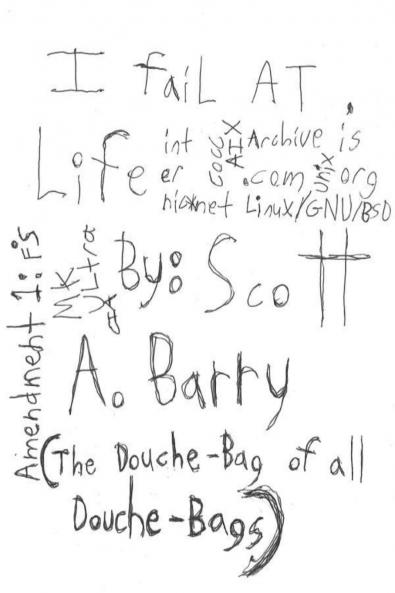 I faiL AT
Life
int Archive is
er .com, org
nic net Linux/GNU/BSD
AIX
Unix
By: Scott
A. Barry
(The Douche-Bag of all
Douche-Bags)
MK
Amendment 1: